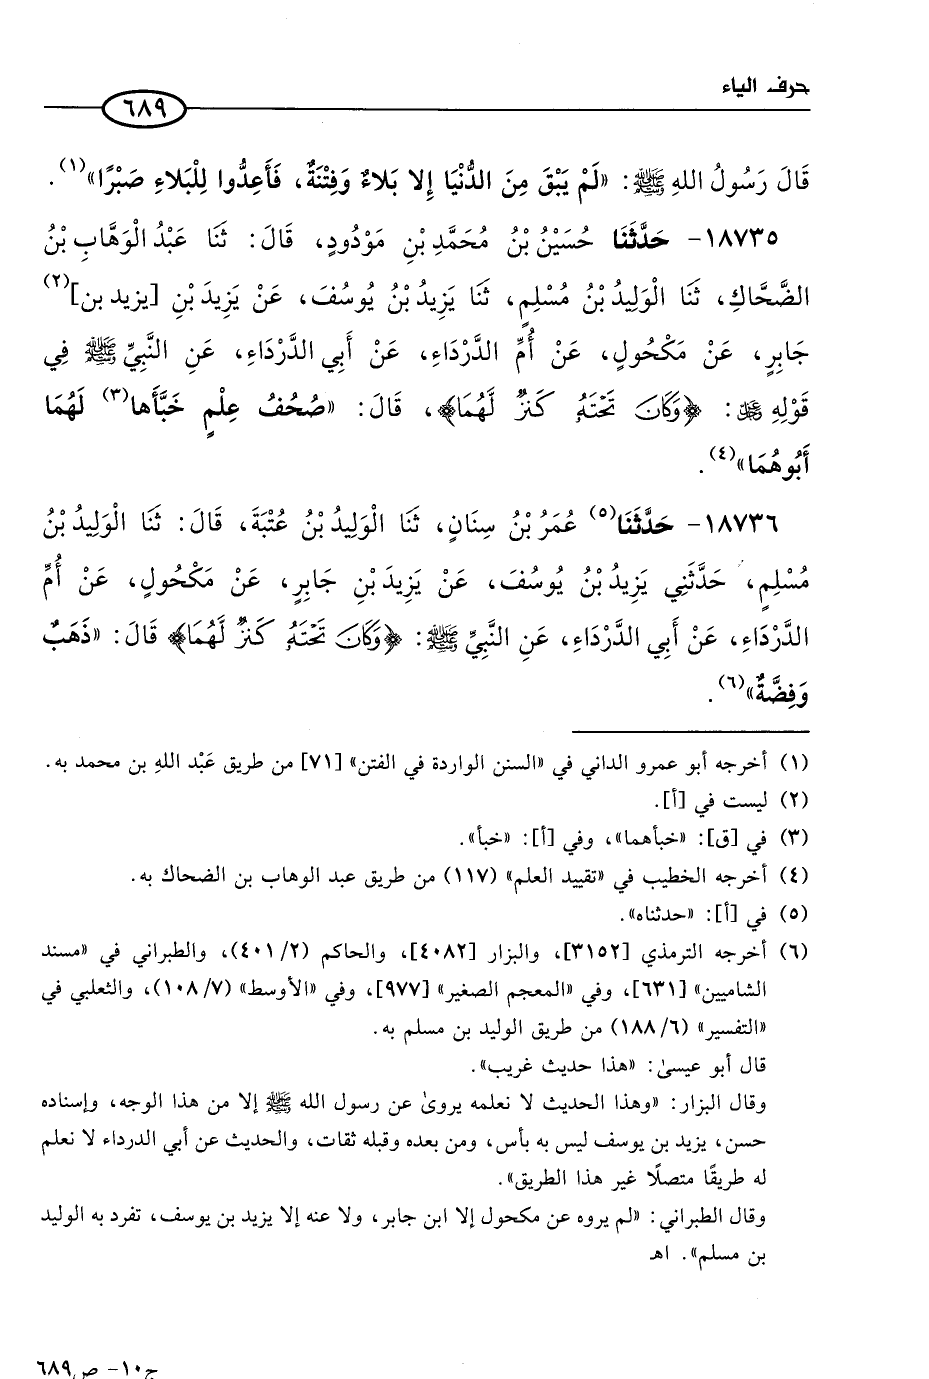 حرف الياء
٦٨٩
قَالَ رَسُولُ اللهِ ﷺ: «لَمْ يَبْقَ مِنَ الدُّنْيَا إِلا بَلاءٌ وَفِتْنَةٌ، فَأَعِدُّوا لِلْبَلاءِ صَبْرًا»(١).
١٨٧٣٥- حَدَّثَنَا حُسَيْنُ بْنُ مُحَمَّدِ بْنِ مَوْدُودٍ، قَالَ: ثَنَا عَبْدُ الْوَهَّابِ بْنُ
الضَّحَّاكِ، ثَنَا الْوَلِيدُ بْنُ مُسْلِمٍ، ثَنَا يَزِيدُ بْنُ يُوسُفَ، عَنْ يَزِيدَ بْنِ [يزيد بن](٢)
جَابِرٍ، عَنْ مَكْحُولٍ، عَنْ أُمِّ الدَّرْدَاءِ، عَنْ أَبِي الدَّرْدَاءِ، عَنِ النَّبِيِّ ﷺ فِي
قَوْلِهِ ﷻ: ﴿وَكَانَ تَحْتَهُ كَنزٌ لَّهُمَا﴾، قَالَ: «صُحُفُ عِلْمٍ خَبَّأَها(٣) لَهُمَا
أَبُوهُمَا»(٤).
١٨٧٣٦- حَدَّثَنَا(٥) عُمَرُ بْنُ سِنَانٍ، ثَنَا الْوَلِيدُ بْنُ عُتْبَةَ، قَالَ: ثَنَا الْوَلِيدُ بْنُ
مُسْلِمٍ، حَدَّثَنِي يَزِيدُ بْنُ يُوسُفَ، عَنْ يَزِيدَ بْنِ جَابِرٍ، عَنْ مَكْحُولٍ، عَنْ أُمِّ
الدَّرْدَاءِ، عَنْ أَبِي الدَّرْدَاءِ، عَنِ النَّبِيِّ ﷺ: ﴿وَكَانَ تَحْتَهُ كَنزٌ لَّهُمَا﴾ قَالَ: «ذَهَبٌ
وَفِضَّةٌ»(٦).
(١) أخرجه أبو عمرو الداني في «السنن الواردة في الفتن» [٧١] من طريق عَبْد اللهِ بن محمد به.
(٢) ليست في [أ].
(٣) في [ق]: «خبأهما»، وفي [أ]: «خبأ».
(٤) أخرجه الخطيب في «تقييد العلم» (١١٧) من طريق عبد الوهاب بن الضحاك به.
(٥) في [أ]: «حدثناه».
(٦) أخرجه الترمذي [٣١٥٢]، والبزار [٤٠٨٢]، والحاكم (٤٠١/٢)، والطبراني في «مسند
الشاميين» [٦٣١]، وفي «المعجم الصغير» [٩٧٧]، وفي «الأوسط» (١٠٨/٧)، والثعلبي في
«التفسير» (١٨٨/٦) من طريق الوليد بن مسلم به.
قال أبو عيسىٰ: «هذا حديث غريب».
وقال البزار: «وهذا الحديث لا نعلمه يروىٰ عن رسول الله ﷺ إلا من هذا الوجه، وإسناده
حسن، يزيد بن يوسف ليس به بأس، ومن بعده وقبله ثقات، والحديث عن أبي الدرداء لا نعلم
له طريقًا متصلًا غير هذا الطريق».
وقال الطبراني: «لم يروه عن مكحول إلا ابن جابر، ولا عنه إلا يزيد بن يوسف، تفرد به الوليد
بن مسلم». اهـ
ج١٠- ص٦٨٩